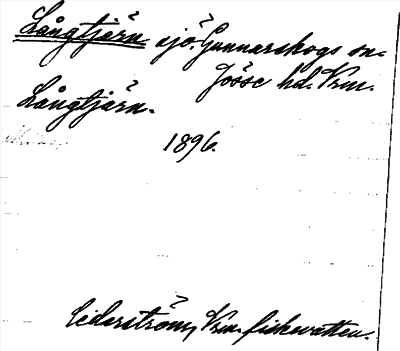 Långtjärn sjö. Gunnarskogs sn.
Jösse hd. Vrm.
Långtjärn.
1896.
Cederström, Vrm. fiskevatten.